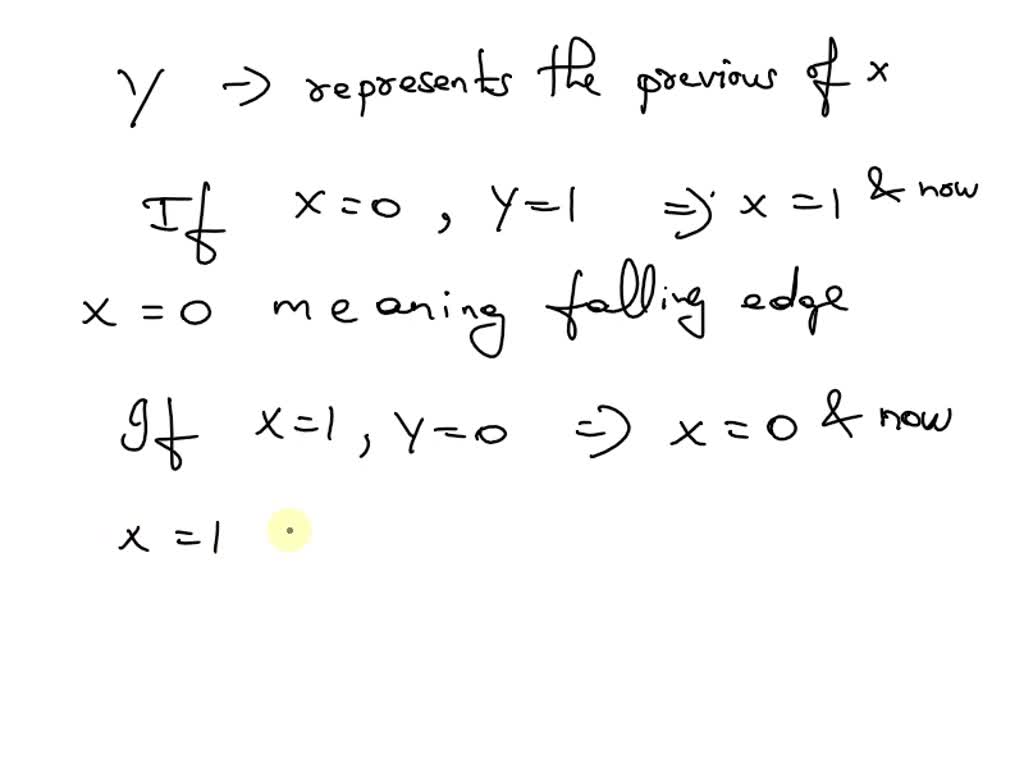 Y → represents the previous of x
If x = 0 , Y = 1 ⇒ x = 1 & now
x = 0 meaning falling edge
If x = 1 , Y = 0 ⇒ x = 0 & now
x = 1